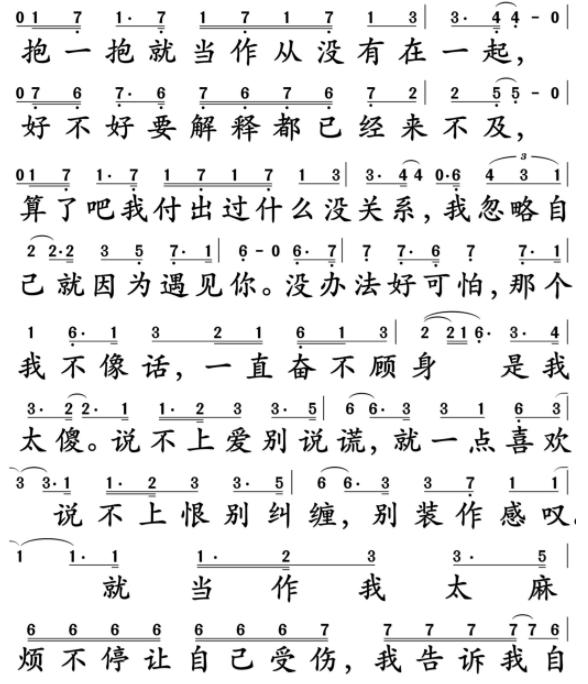 01 7 1· 7 1 7 1 7 1 3 3· 4 4 - 0
抱一抱就当作从没有在一起,
07 6 7· 6 7 6 7 6 7 2 2 5 5 - 0
好不好要解释都已经来不及,
01 7 1· 7 1 7 1 7 1 3 3· 4 4 0·6 4 3 1
算了吧我付出过什么没关系,我忽略自
2 2·2 3 5 7· 1 6 - 0 6· 7 7 7· 6 7 7· 1
己就因为遇见你。没办法好可怕,那个
1 6· 1 3 2 1 6 1 3 2 21 6· 3· 4
我不像话,一直奋不顾身 是我
3· 2 2· 1 1· 2 3 3· 5 6 6· 3 3 1 6 3
太傻。说不上爱别说谎,就一点喜欢
3 3·1 1· 2 3 3· 5 6 6· 3 3 7 1 1
说不上恨别纠缠,别装作感叹。
1 1· 1 1· 2 3 3· 5
就当作我太麻
6 6 6 6 6 6 6 7 7 7 7 7 7 6
烦不停让自己受伤,我告诉我自